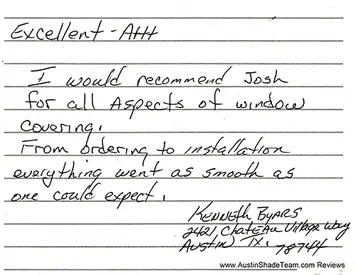 Excellent - A+++
I would recommend Josh
for all Aspects of window
covering.
From ordering to installation
everything went as smooth as
one could expect.
KENNETH BYARS
2421 Chateau Village Way
Austin TX. 78744
www.AustinShadeTeam.com Reviews